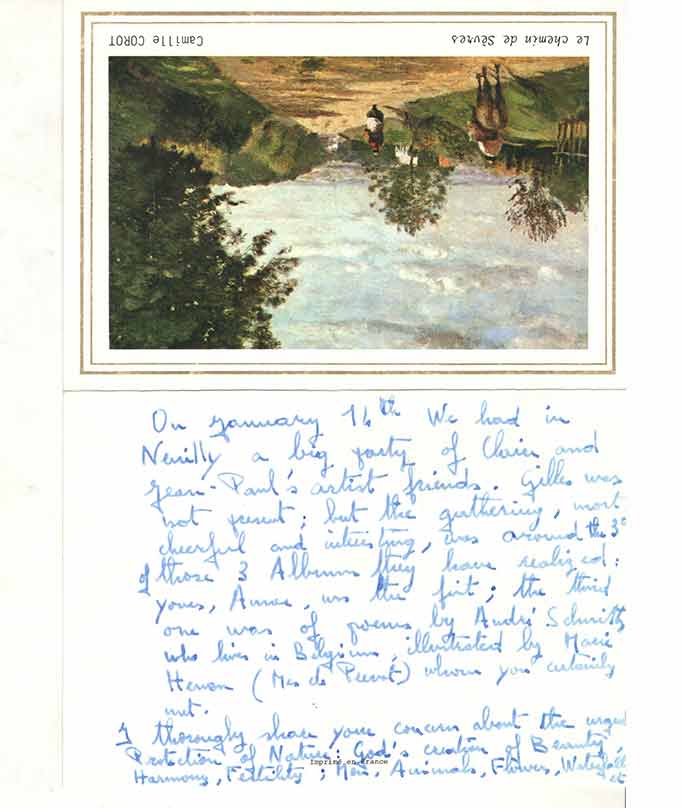 Le chemin de Sèvres
Camille COROT
On January 14th We had in
Neuilly a big party of Claire and
Jean-Paul's artist friends. Gilles was
not present; but the gathering, most
cheerful and interesting, was around the 3e
of those 3 Albums they have realized:
yours, Annae, was the first; the third
one was of poems by André Schmitz
who lives in Belgium, illustrated by Marie
Henon (Mes de Peevot) whom you certainly
met.
I thoroughly share your concern about the urgent
Protection of Nature: God's creation of Beauty,
Harmony, Fertility; Men, Animals, Flowers, Waterfall
etc
Imprimé en France